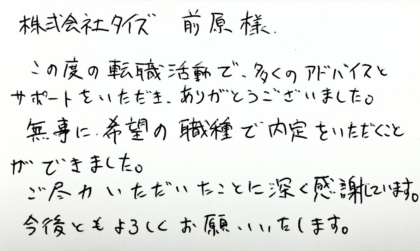 株式会社タイズ 前原様.
この度の転職活動で、多くのアドバイスと
サポートをいただき、ありがとうございました。
無事に、希望の職種で内定をいただくこと
ができました。
ご尽力いただいたことに深く感謝しています。
今後ともよろしくお願いいたします。